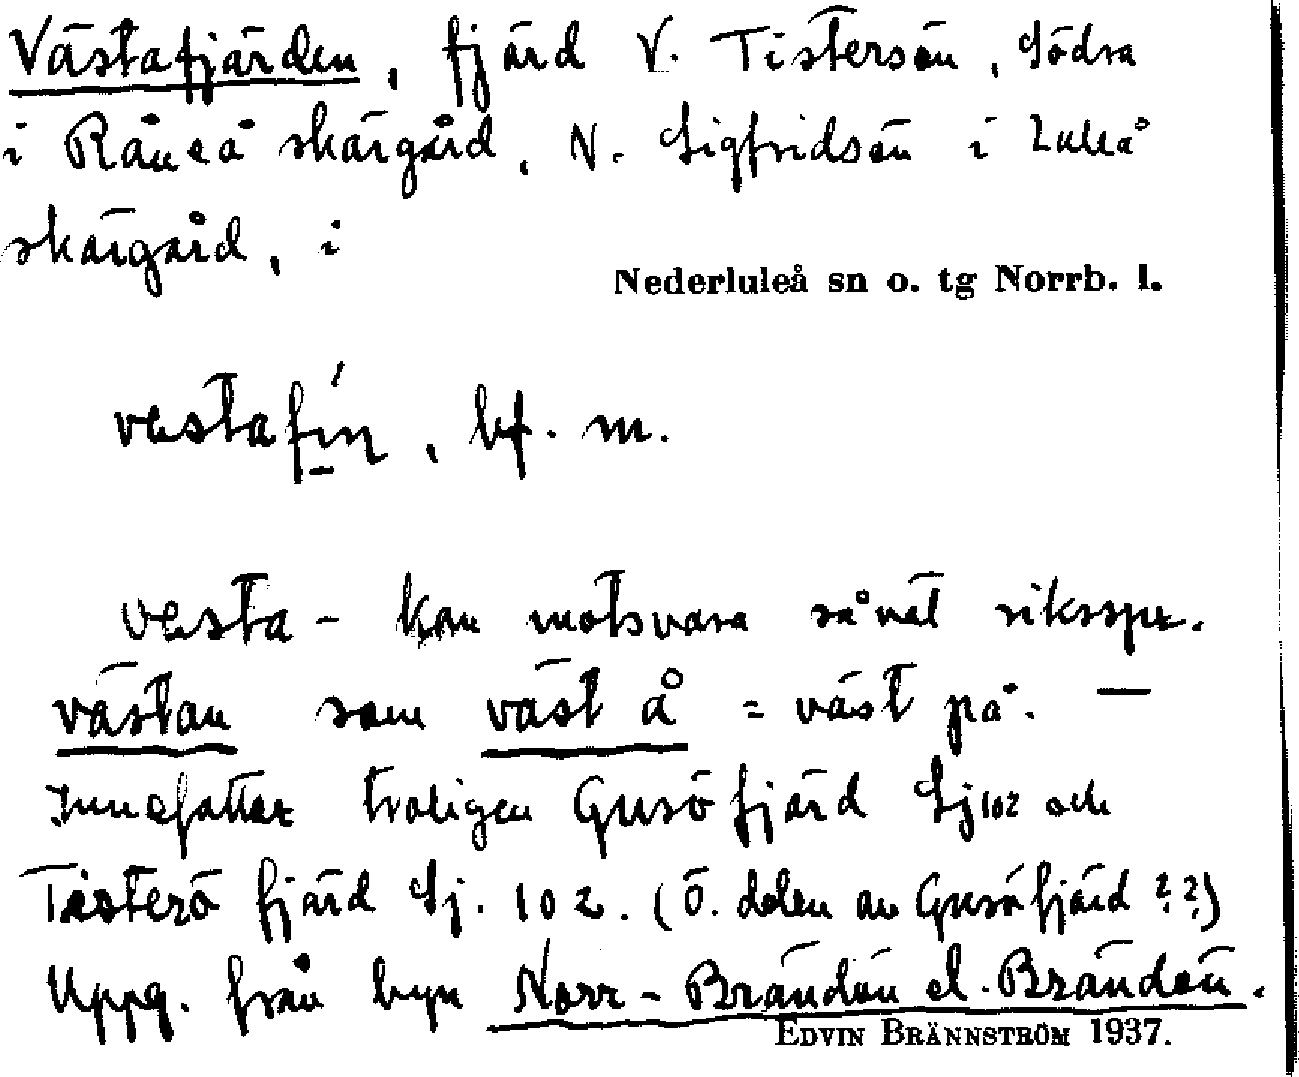 Västafjärden, fjärd V. Tistersön, södra
i Råneå skärgård, N. Sigfridsön i Luleå
skärgård, i
Nederluleå sn o. tg Norrb. l.
vestafin, bf. m.
vesta- kan motsvara såväl riksspr.
västan som väst å = väst på. —
Innefattar troligen Gusöfjärd Sj 102 och
Tisterö fjärd Sj. 102. (Ö. delen av Gusöfjärd ??)
Uppg. från byn Norr-Brändön el. Brändön.
EDVIN BRÄNNSTRÖM 1937.